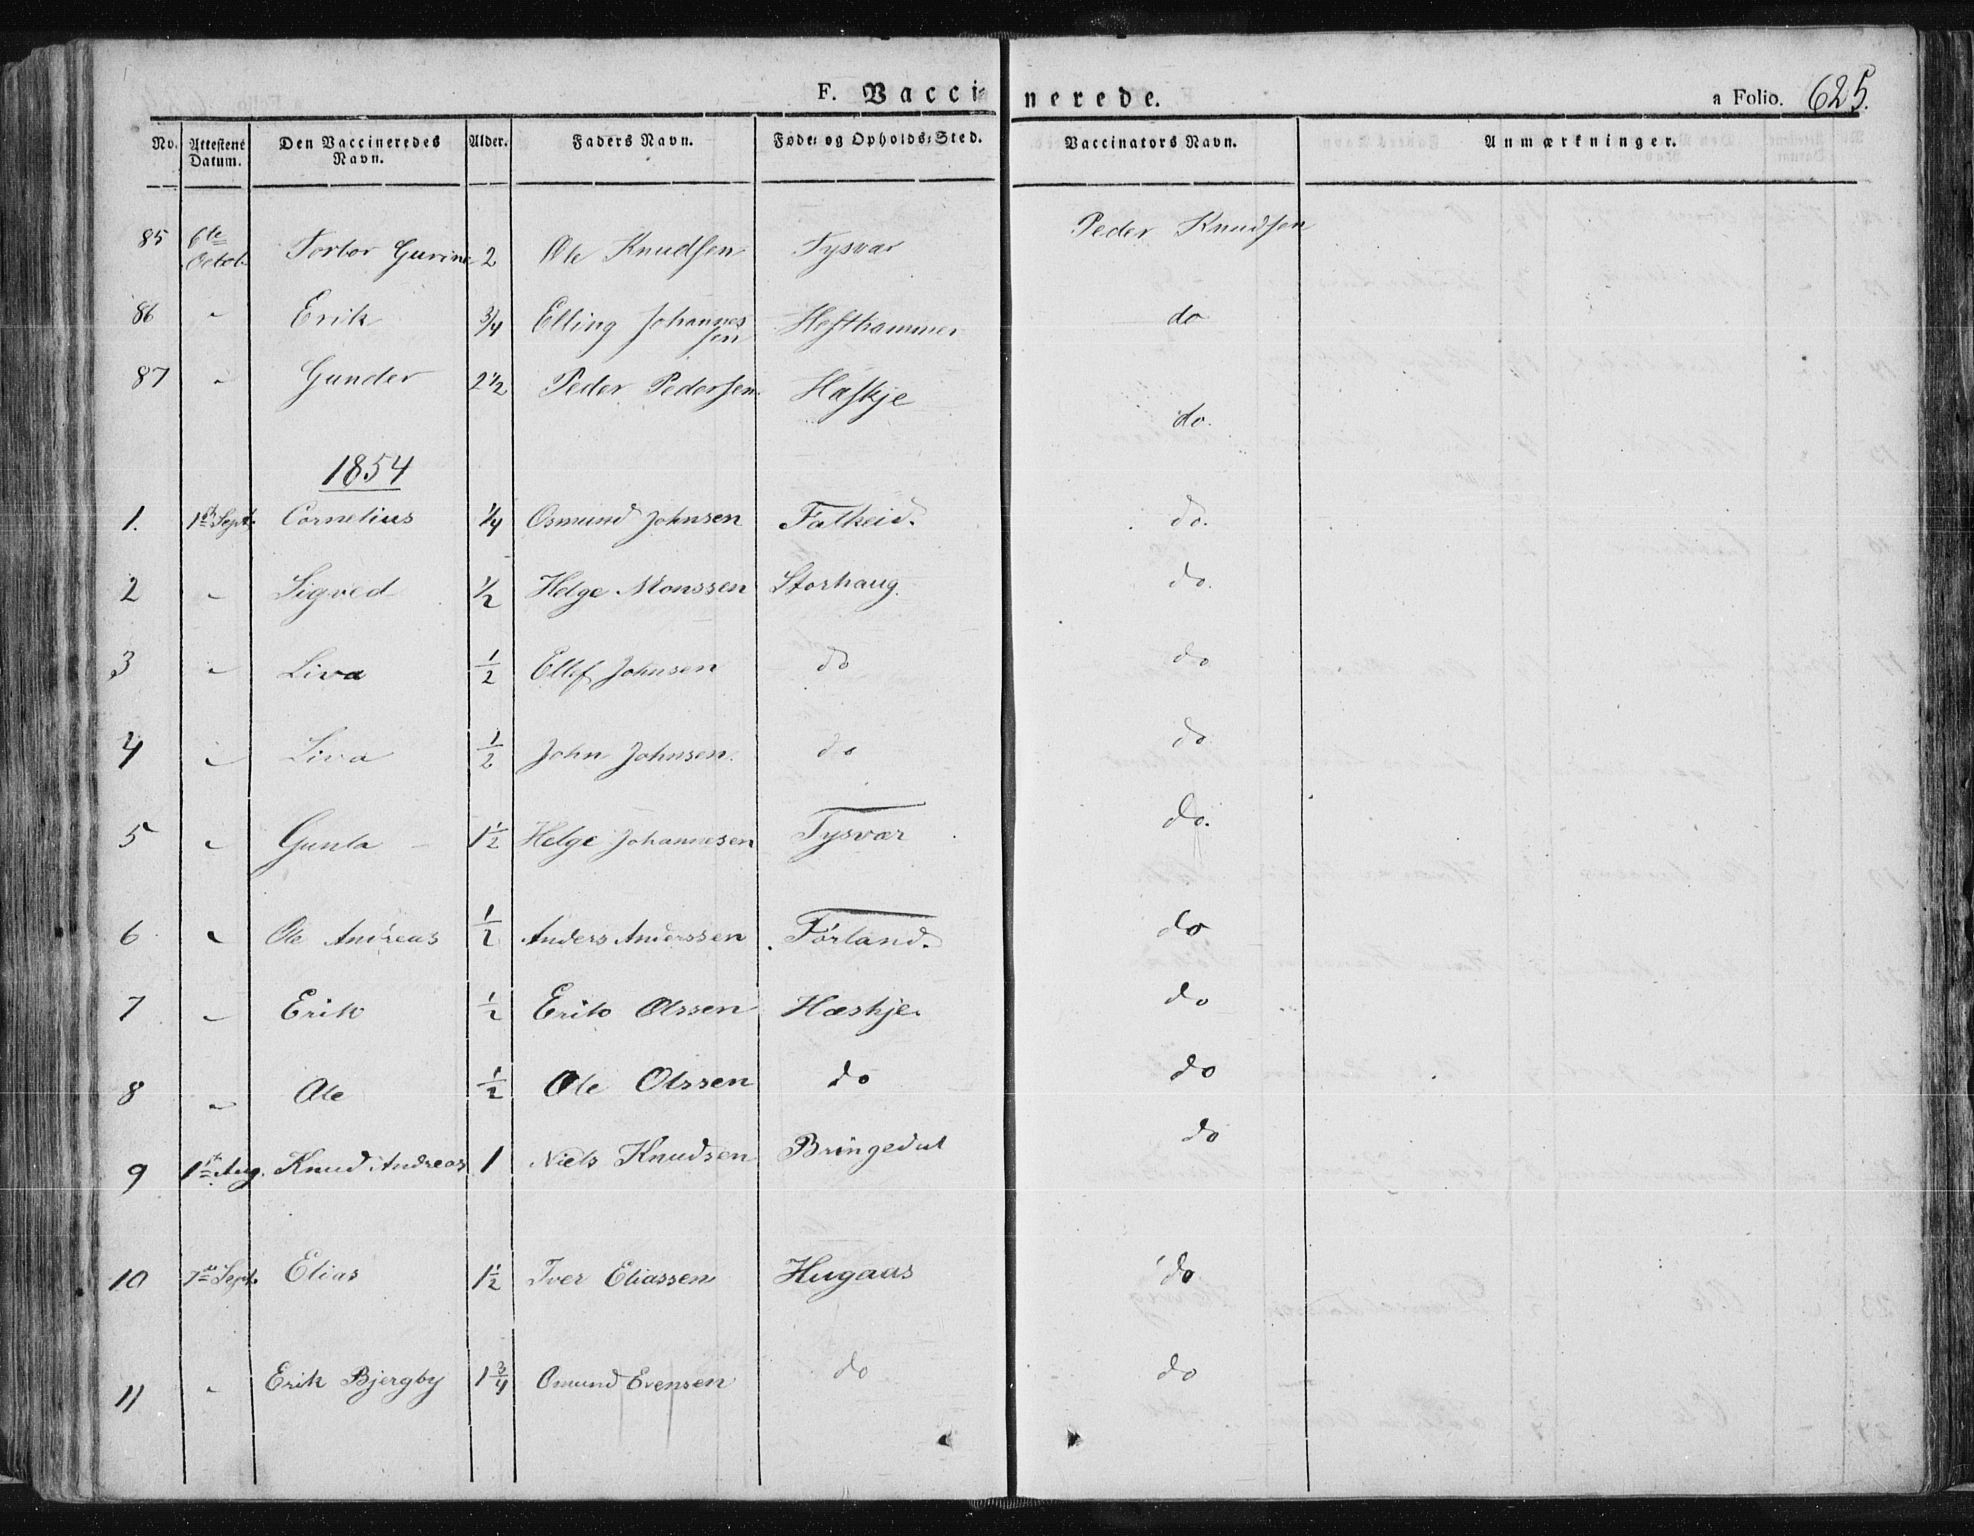 F. Vaccinerede. a Folio. 625.
No. Attestens Datum. Den Vaccineredes Navn. Alder. Faders Navn. Føde- og Opholds-Sted. Vaccinators Navn. Anmærkninger.
85 6te Octob. Torbor Gurine 2 Ole Knudsen Tysvær Peder Knudsen
86 " Erik 3/4 Elling Johannessen Hesthammer do
87 " Gunder 2 1/2 Peder Pedersen Hæskje do.
1854
1. 1ste Sept. Cornelius 1/4 Osmund Johnsen Falkeid. do.
2 " Sigved 1/2 Helge Monssen Storhaug. do.
3 " Liva 1/2 Ellef Johnsen do do
4 " Liva 1/2 John Johnsen. do do
5 " Gunla 1 1/2 Helge Johannesen Tysvær do.
6 " Ole Andreas 1/2 Anders Anderssen Førland. do
7 " Erik 1/2 Erik Olssen Hæskje. do
8 " Ole 1/2 Ole Olssen do do
9 1ste Aug. Knud Andreas 1 Niels Knudsen Bringedal do
10 7de Sept. Elias 1 1/2 Iver Eliassen Hugaas do
11 " Erik Bjergby 1 3/4 Omund Evensen do do